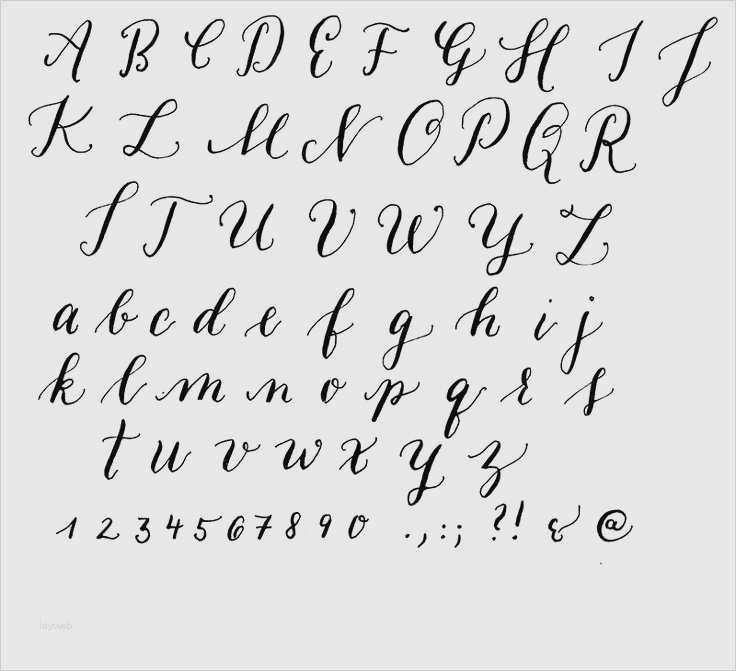 A B C D E F G H I J
K L M N O P Q R
S T U V W Y Z
a b c d e f g h i j
k l m n o p q r s
t u v w x y z
1 2 3 4 5 6 7 8 9 0 . , : ; ? ! & @